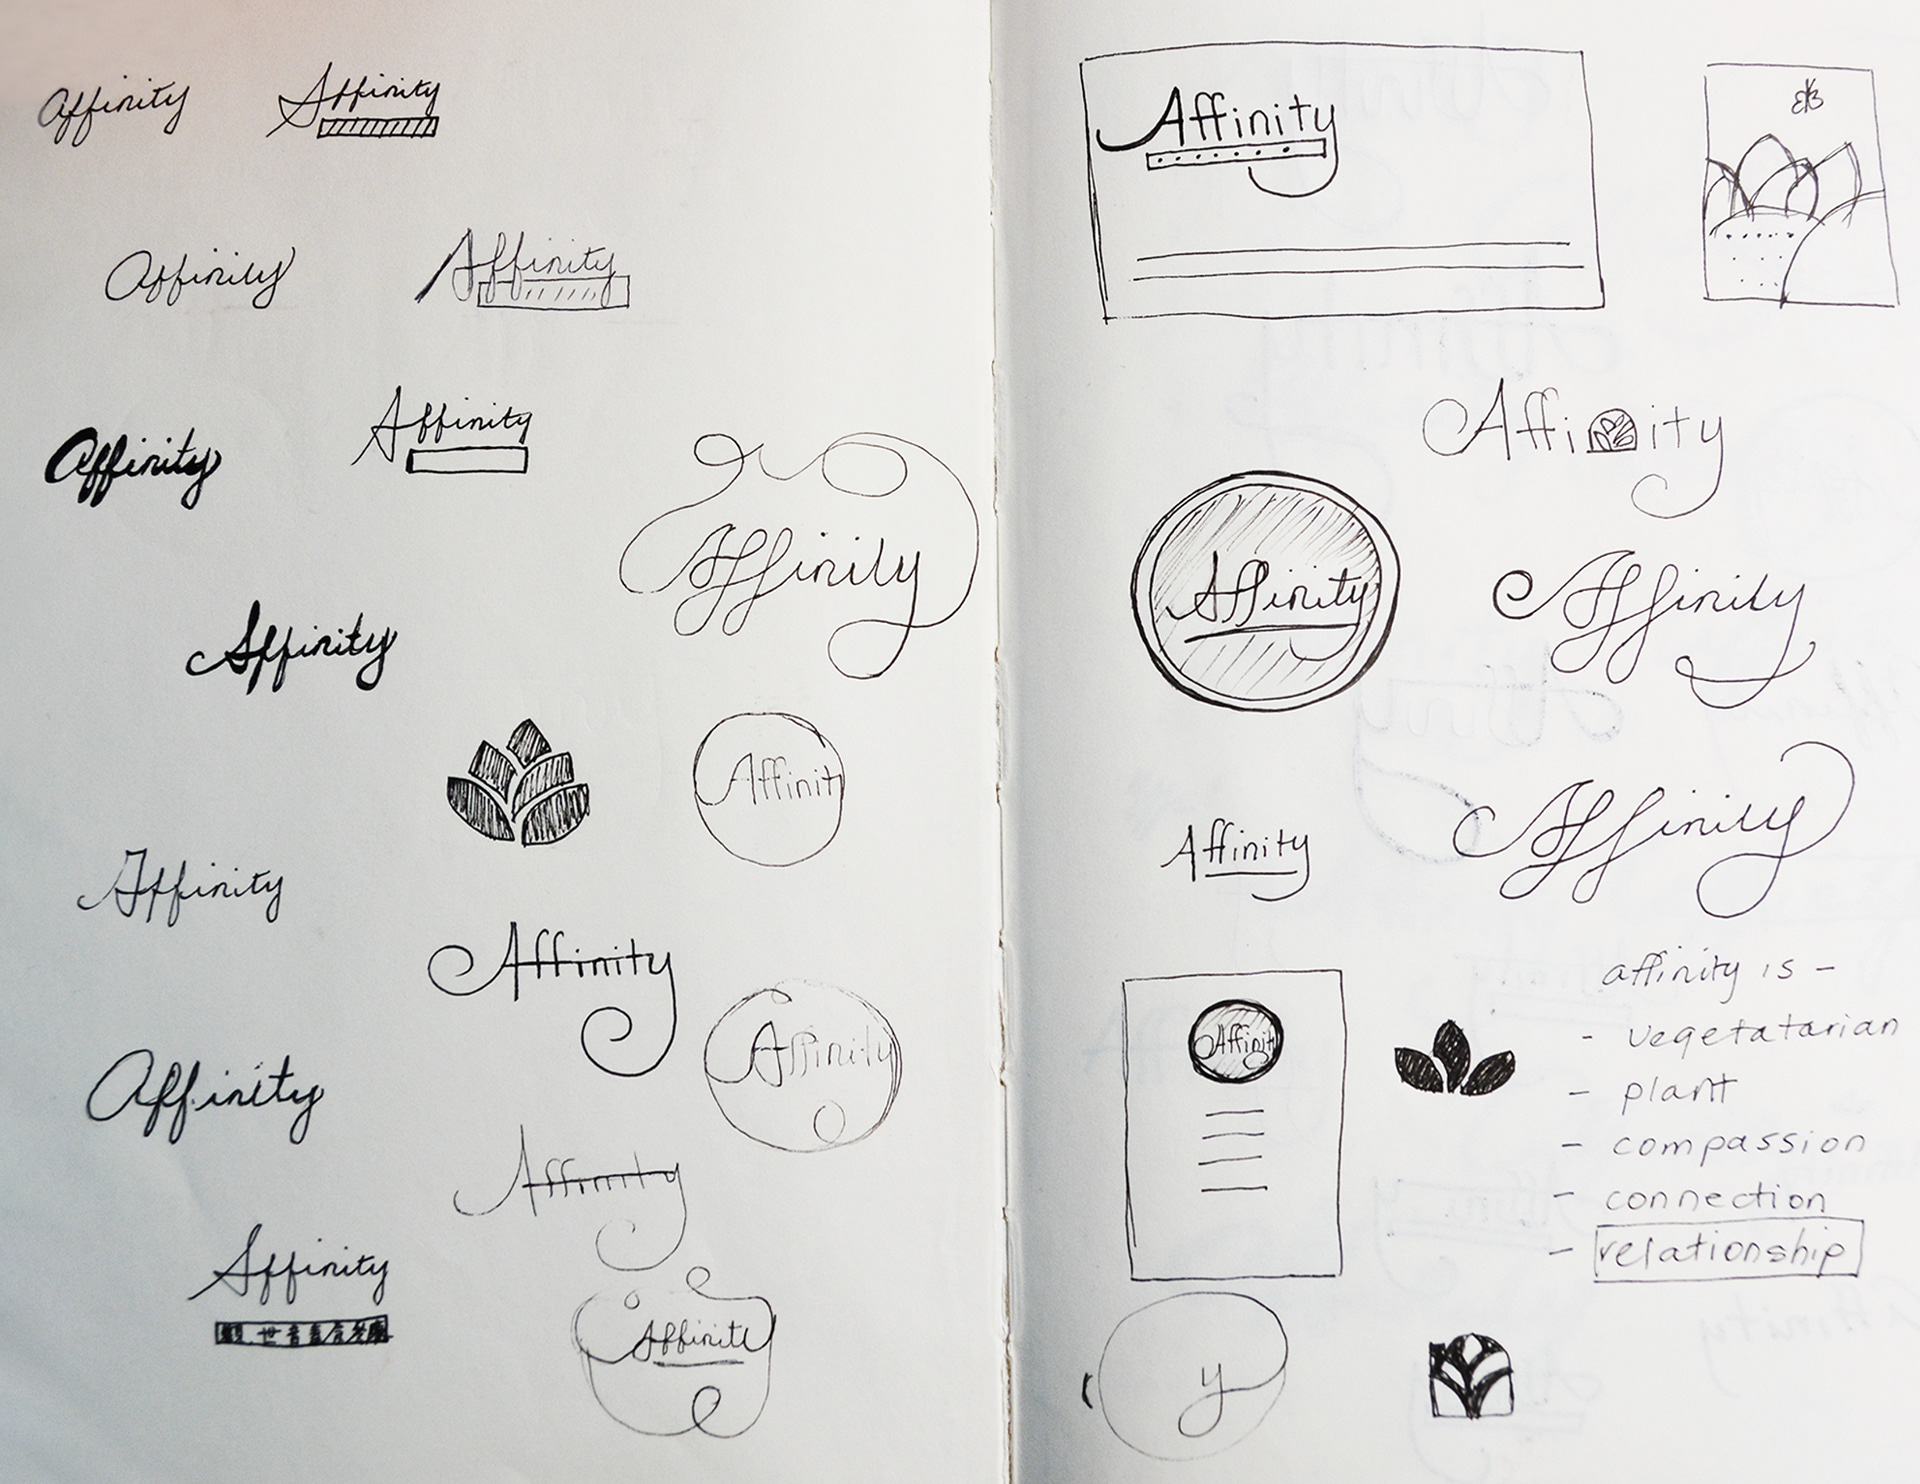 Affinity
Affinity
Affinity
Affinity
Affinity
Affinity
Affinity
Affinity
Affinit
Affinity
Affinity
Affinity
Affinity
Affinity
Affinity
世音
Affinite
Affinity
Affi ity
Affinity
Affinity
Affinity
Affinity
Affinit
affinity is -
- vegetatarian
- plant
- compassion
- connection
- relationship
y